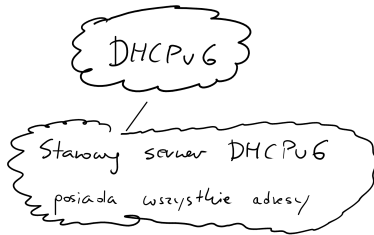 DHCPv6
Stanowy serwer DHCPv6
posiada wszystkie adresy